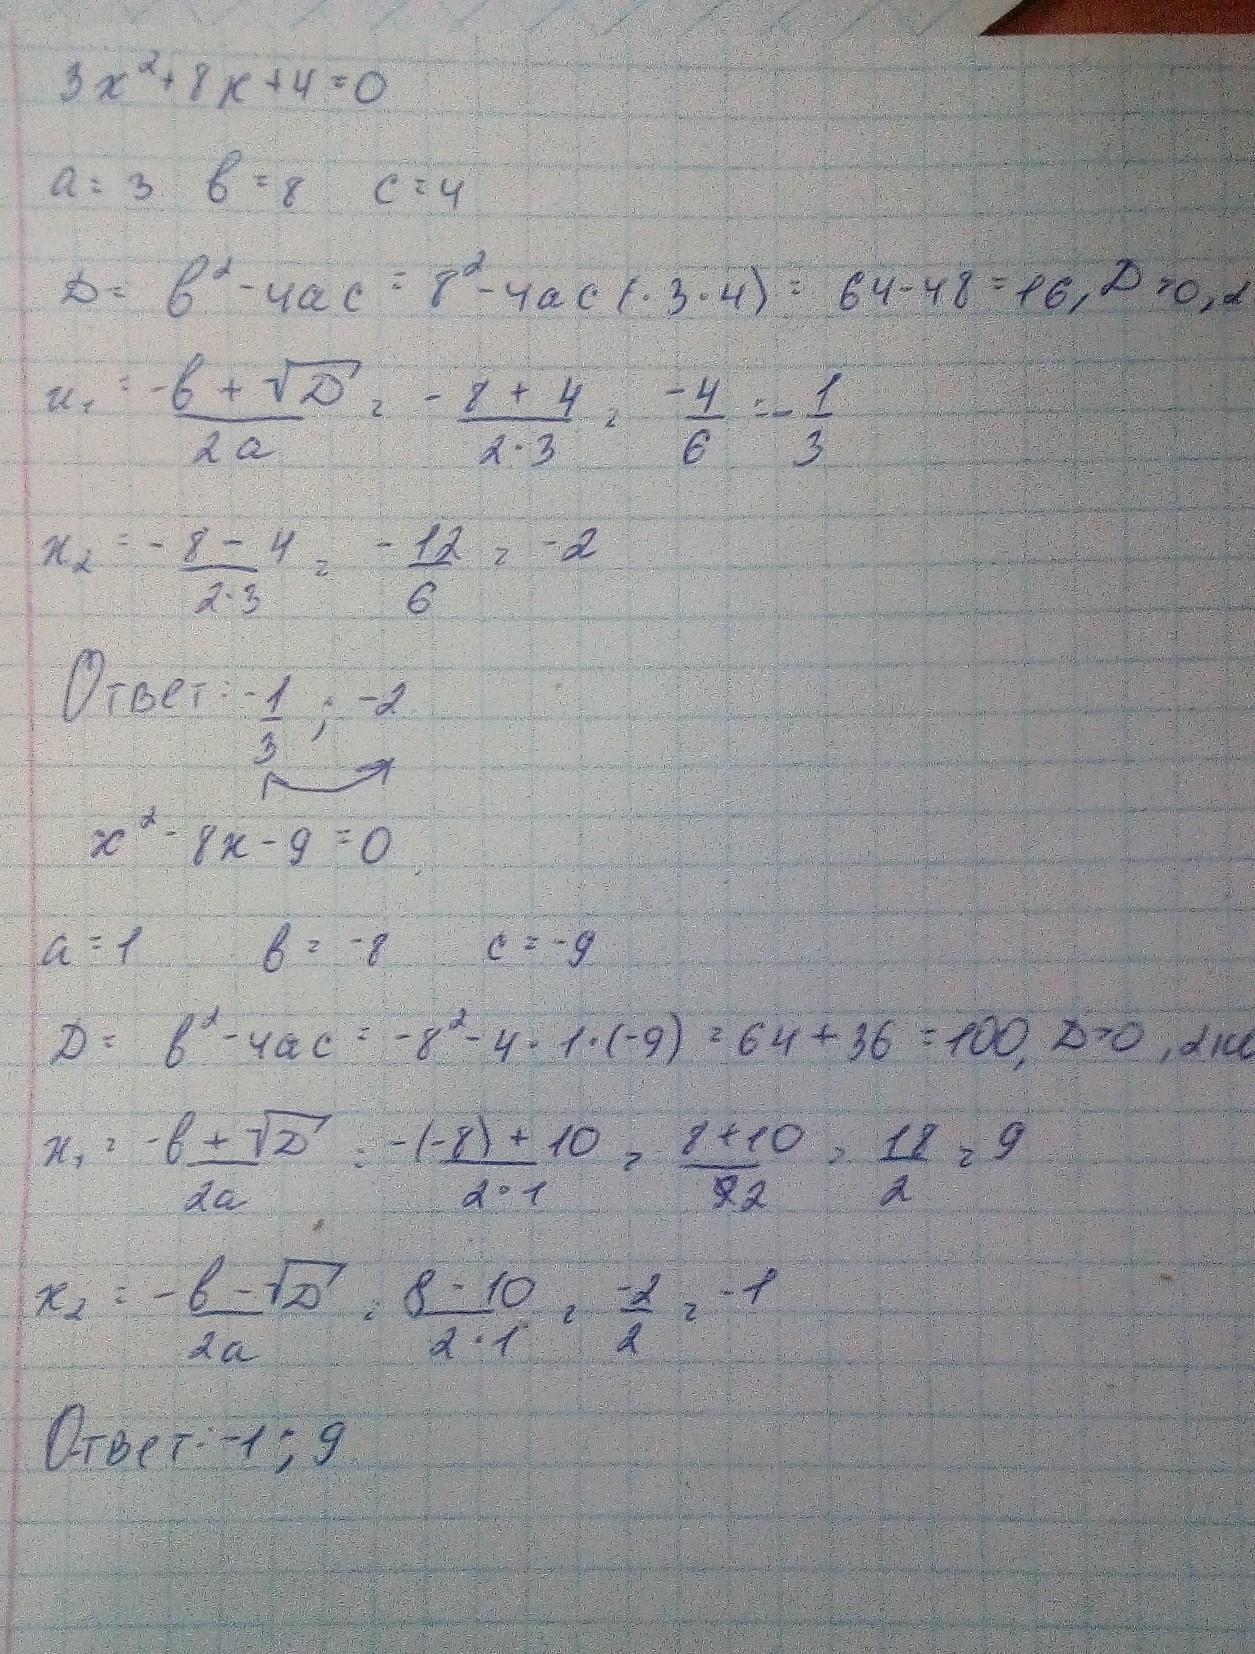 3x² + 8x + 4 = 0
a = 3 в = 8 c = 4
D = в² - 4ac = 8² - 4ac (· 3 · 4) = 64 - 48 = 16, D > 0, 2
x₁ = -в + √D / 2a = -8 + 4 / 2 · 3 = -4/6 = -1/3
x₂ = -8 - 4 / 2 · 3 = -12/6 = -2
Ответ: -1/3 ; -2
x² - 8x - 9 = 0
a = 1 в = -8 c = -9
D = в² - 4ac = -8² - 4 · 1 · (-9) = 64 + 36 = 100, D > 0, 2 ко
x₁ = -в + √D / 2a = -(-8) + 10 / 2 · 1 = 8 + 10 / 2 = 18/2 = 9
x₂ = -в - √D / 2a = 8 - 10 / 2 · 1 = -2/2 = -1
Ответ: -1 ; 9